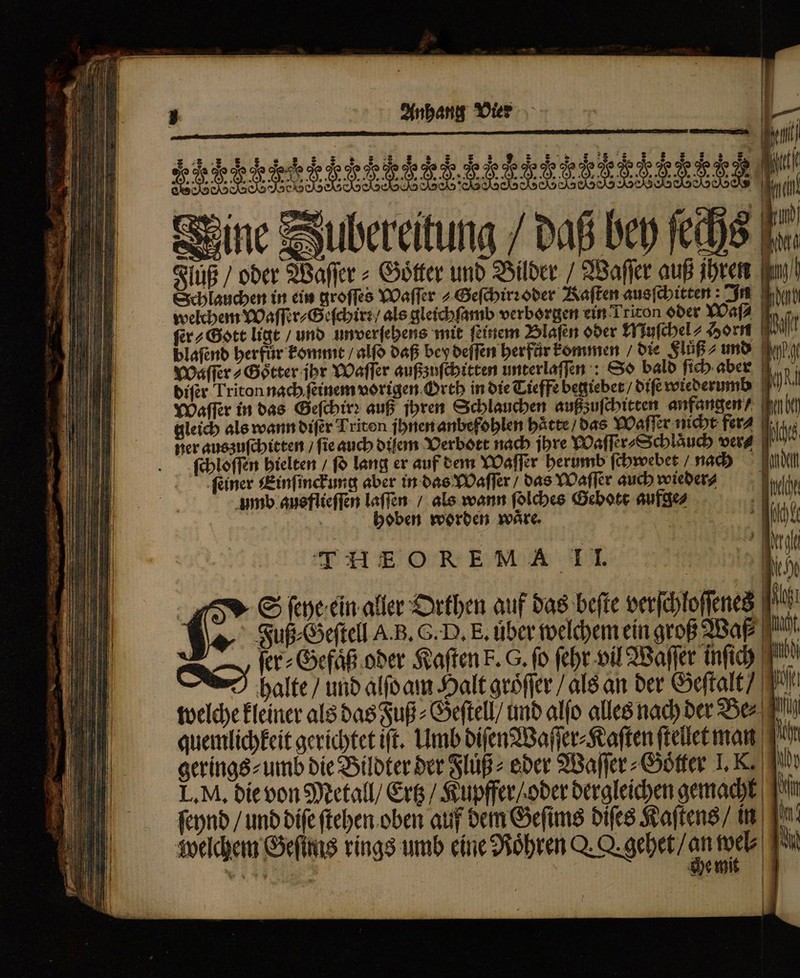 8 Anhang Vier
Eine Zubereitung / daß bey sechs
Fluß / oder Wasser-Götter und Bilder / Wasser auß jhren
Schlauchen in ein grosses Wasser-Geschirr oder Kasten ausschitten: In
welchem Wasser-Geschirr / als gleichsamb verborgen ein Triton oder Was-
ser-Gott ligt / und unversehens mit seinem Blasen oder Muschel-Horn
blasend herfür kommt / also daß bey dessen herfür kommen / die Fluß- und
Wasser-Götter jhr Wasser außzuschitten unterlassen: So bald sich aber
diser Triton nach seinem vorigen Orth in die Tieffe begiebet / dise wiederumb
Wasser in das Geschirr auß jhren Schlauchen außzuschitten anfangen /
gleich als wann diser Triton jhnen anbefohlen hätte / das Wasser nicht fer-
ner auszuschitten / sie auch disem Verbott nach jhre Wasser-Schläuch ver-
schlossen hielten / so lang er auf dem Wasser herumb schwebet / nach
seiner Einsinckung aber in das Wasser / das Wasser auch wieder-
umb ausfliessen lassen / als wann solches Gebott aufge-
hoben worden wäre.
THEOREMA II.
ES seye ein aller Orthen auf das beste verschlossenes
Fuß-Gestell A.B.C.D.E. über welchem ein groß Was-
ser-Gefäß oder Kasten F.G. so sehr vil Wasser insich
halte / und also am Halt grösser / als an der Gestalt /
welche kleiner als das Fuß-Gestell / und also alles nach der Be-
quemlichkeit gerichtet ist. Umb disen Wasser-Kasten stellet man
gerings-umb die Bildter der Fluß- oder Wasser-Götter I. K.
L. M. die von Metall / Ertz / Kupffer / oder dergleichen gemacht
seynd / und dise stehen oben auf dem Gesims dises Kastens / in
welchem Gesims rings umb eine Röhren Q.Q. gehet / an wel-
che mit